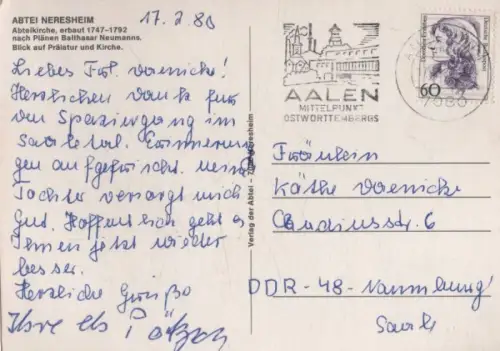 ABTEI NERESHEIM
Abteikirche, erbaut 1747-1792
nach Plänen Balthasar Neumanns.
Blick auf Prälatur und Kirche.
17.2.88
Liebes Frl. Doenicke!
Herzlichen Dank für
den Spaziergang im
Saaletal. Erinnerun
gen aufgefrischt. Meine
Tochter versorgt mich
gut. Hoffentlich geht es
Ihnen jetzt wieder
besser.
Herzliche Grüße
Ihre
Verlag der Abtei - Neresheim
AALEN
MITTELPUNKT
OSTWÜRTTEMBERGS
7080
60
Fräulein
Käthe Doenicke
6
DDR-48-Naumburg
Saale